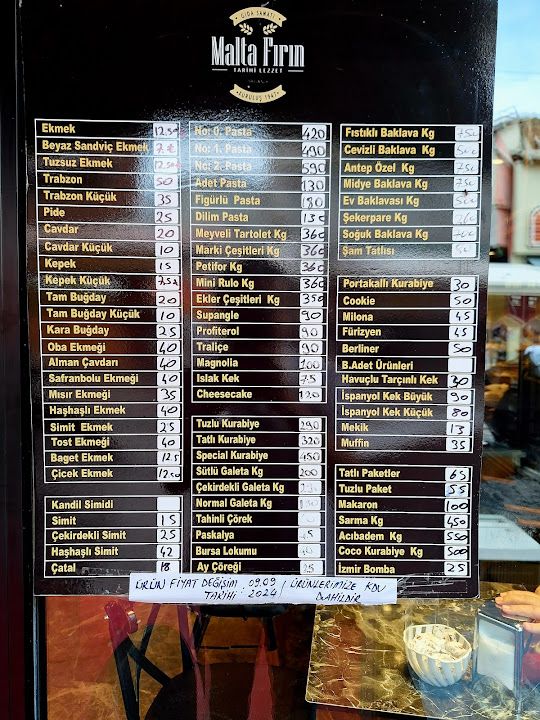 GIDA SANATI
Malta Fırın
TARİHİ LEZZET
KURULUŞ 1947
Ekmek 12.50
Beyaz Sandviç Ekmek 7 ₺
Tuzsuz Ekmek 12.50
Trabzon 50
Trabzon Küçük 35
Pide 25
Cavdar 20
Cavdar Küçük 10
Kepek 15
Kepek Küçük 7.50
Tam Buğday 20
Tam Buğday Küçük 10
Kara Buğday 25
Oba Ekmeği 40
Alman Çavdarı 40
Safranbolu Ekmeği 40
Mısır Ekmeği 35
Haşhaşlı Ekmek 40
Simit Ekmek 25
Tost Ekmeği 40
Baget Ekmek 12.5
Çiçek Ekmek 12.50
Kandil Simidi
Simit 15
Çekirdekli Simit 25
Haşhaşlı Simit 42
Çatal 18
No: 0. Pasta 420
No: 1. Pasta 490
No: 2. Pasta 590
Adet Pasta 130
Figürlü Pasta 180
Dilim Pasta 130
Meyveli Tartolet Kg 360
Marki Çeşitleri Kg 360
Petifor Kg 360
Mini Rulo Kg 360
Ekler Çeşitleri Kg 350
Supangle 90
Profiterol 90
Traliçe 90
Magnolia 100
Islak Kek 75
Cheesecake 120
Tuzlu Kurabiye 290
Tatlı Kurabiye 320
Special Kurabiye 450
Sütlü Galeta Kg 200
Çekirdekli Galeta Kg
Normal Galeta Kg
Tahinli Çörek
Paskalya 45
Bursa Lokumu
Ay Çöreği 25
Fıstıklı Baklava Kg 750
Cevizli Baklava Kg
Antep Özel Kg 750
Midye Baklava Kg 750
Ev Baklavası Kg
Şekerpare Kg
Soğuk Baklava Kg
Şam Tatlısı
Portakallı Kurabiye 30
Cookie 50
Milona 45
Fürizyen 45
Berliner 50
B.Adet Ürünleri
Havuçlu Tarçınlı Kek 30
İspanyol Kek Büyük 90
İspanyol Kek Küçük 80
Mekik 13
Muffin 35
Tatlı Paketler 65
Tuzlu Paket 55
Makaron 100
Sarma Kg 450
Acıbadem Kg 550
Coco Kurabiye Kg 500
İzmir Bomba 25
ÜRÜN FİYAT DEĞİŞİM 09.09 / ÜRÜNLERİMİZE KDV
TARİHİ : 2024 DAHİLDİR